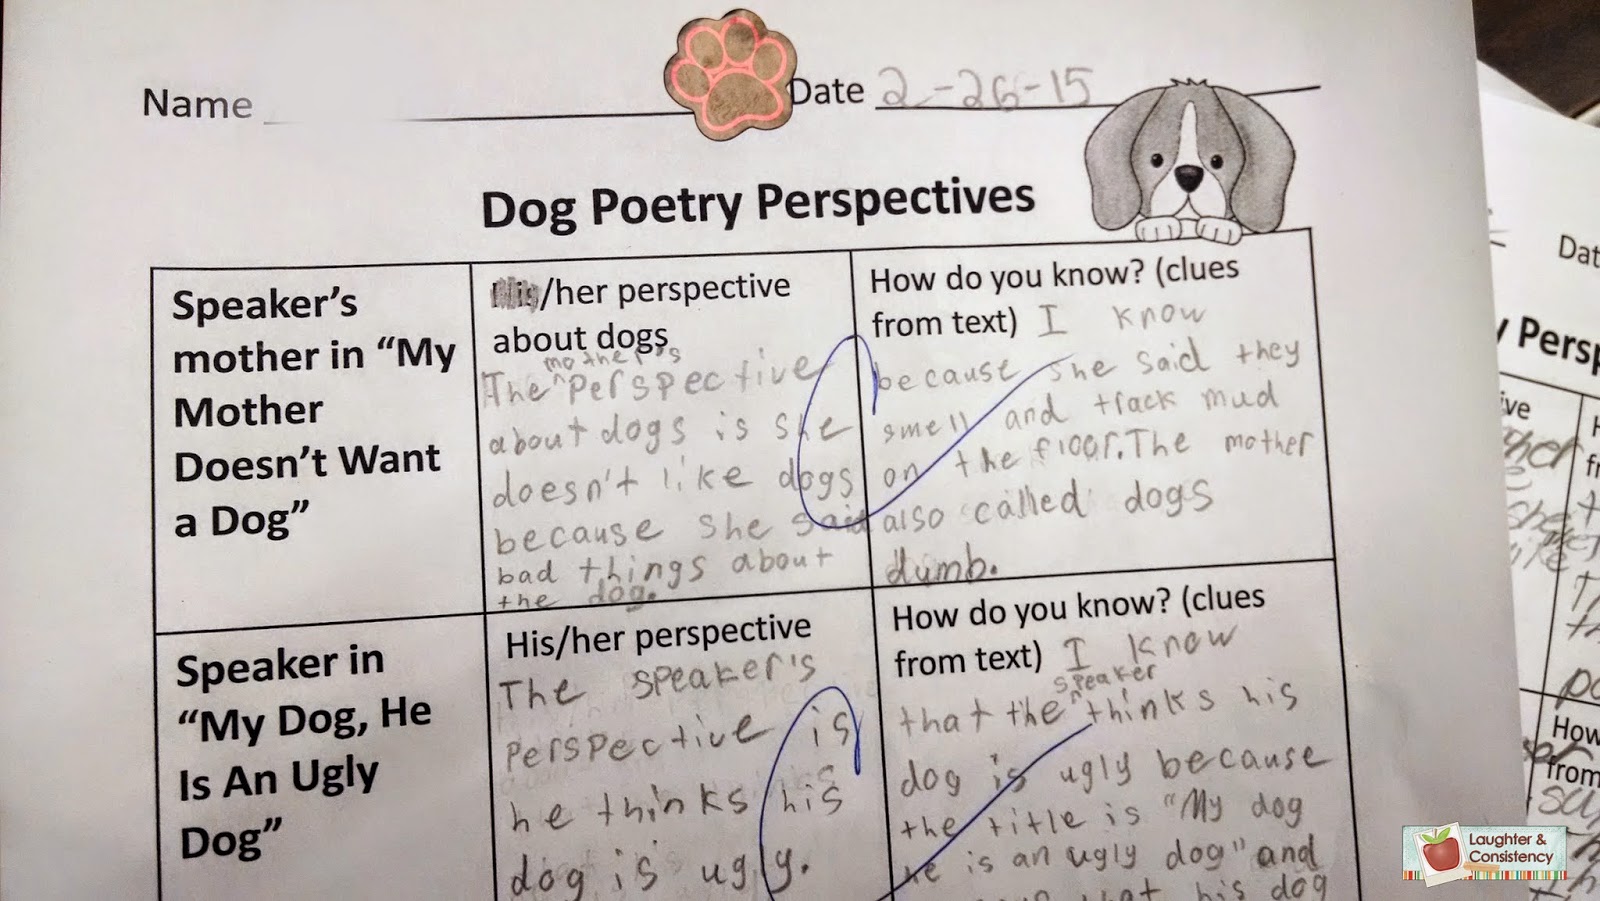 Name
Date 2-26-15
Dog Poetry Perspectives
Speaker's
mother in "My
Mother
Doesn't Want
a Dog"
His/her perspective
about dogs
mother's
The ^ perspective
about dogs is she
doesn't like dogs
because she said
bad things about
the dog.
How do you know? (clues
from text) I know
because she said they
smell and track mud
on the floor. The mother
also called dogs
dumb.
Speaker in
"My Dog, He
Is An Ugly
Dog"
His/her perspective
The speaker's
perspective is
he thinks his
dog is ugly.
How do you know? (clues
from text) I know
speaker
that the ^ thinks his
dog is ugly because
the title is "My dog
he is an ugly dog" and
that his dog
Dat
y Persp
ive
How
from
Laughter &
Consistency